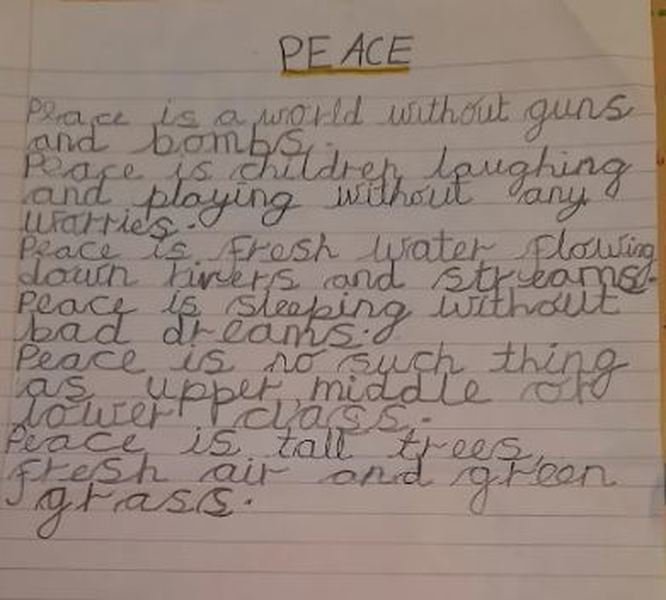 PEACE
Peace is a world without guns
and bombs.
Peace is children laughing
and playing without any
worries.
Peace is fresh water flowing
down rivers and streams.
Peace is sleeping without
bad dreams.
Peace is no such thing
as upper, middle or
lower class.
Peace is tall trees,
fresh air and green
grass.